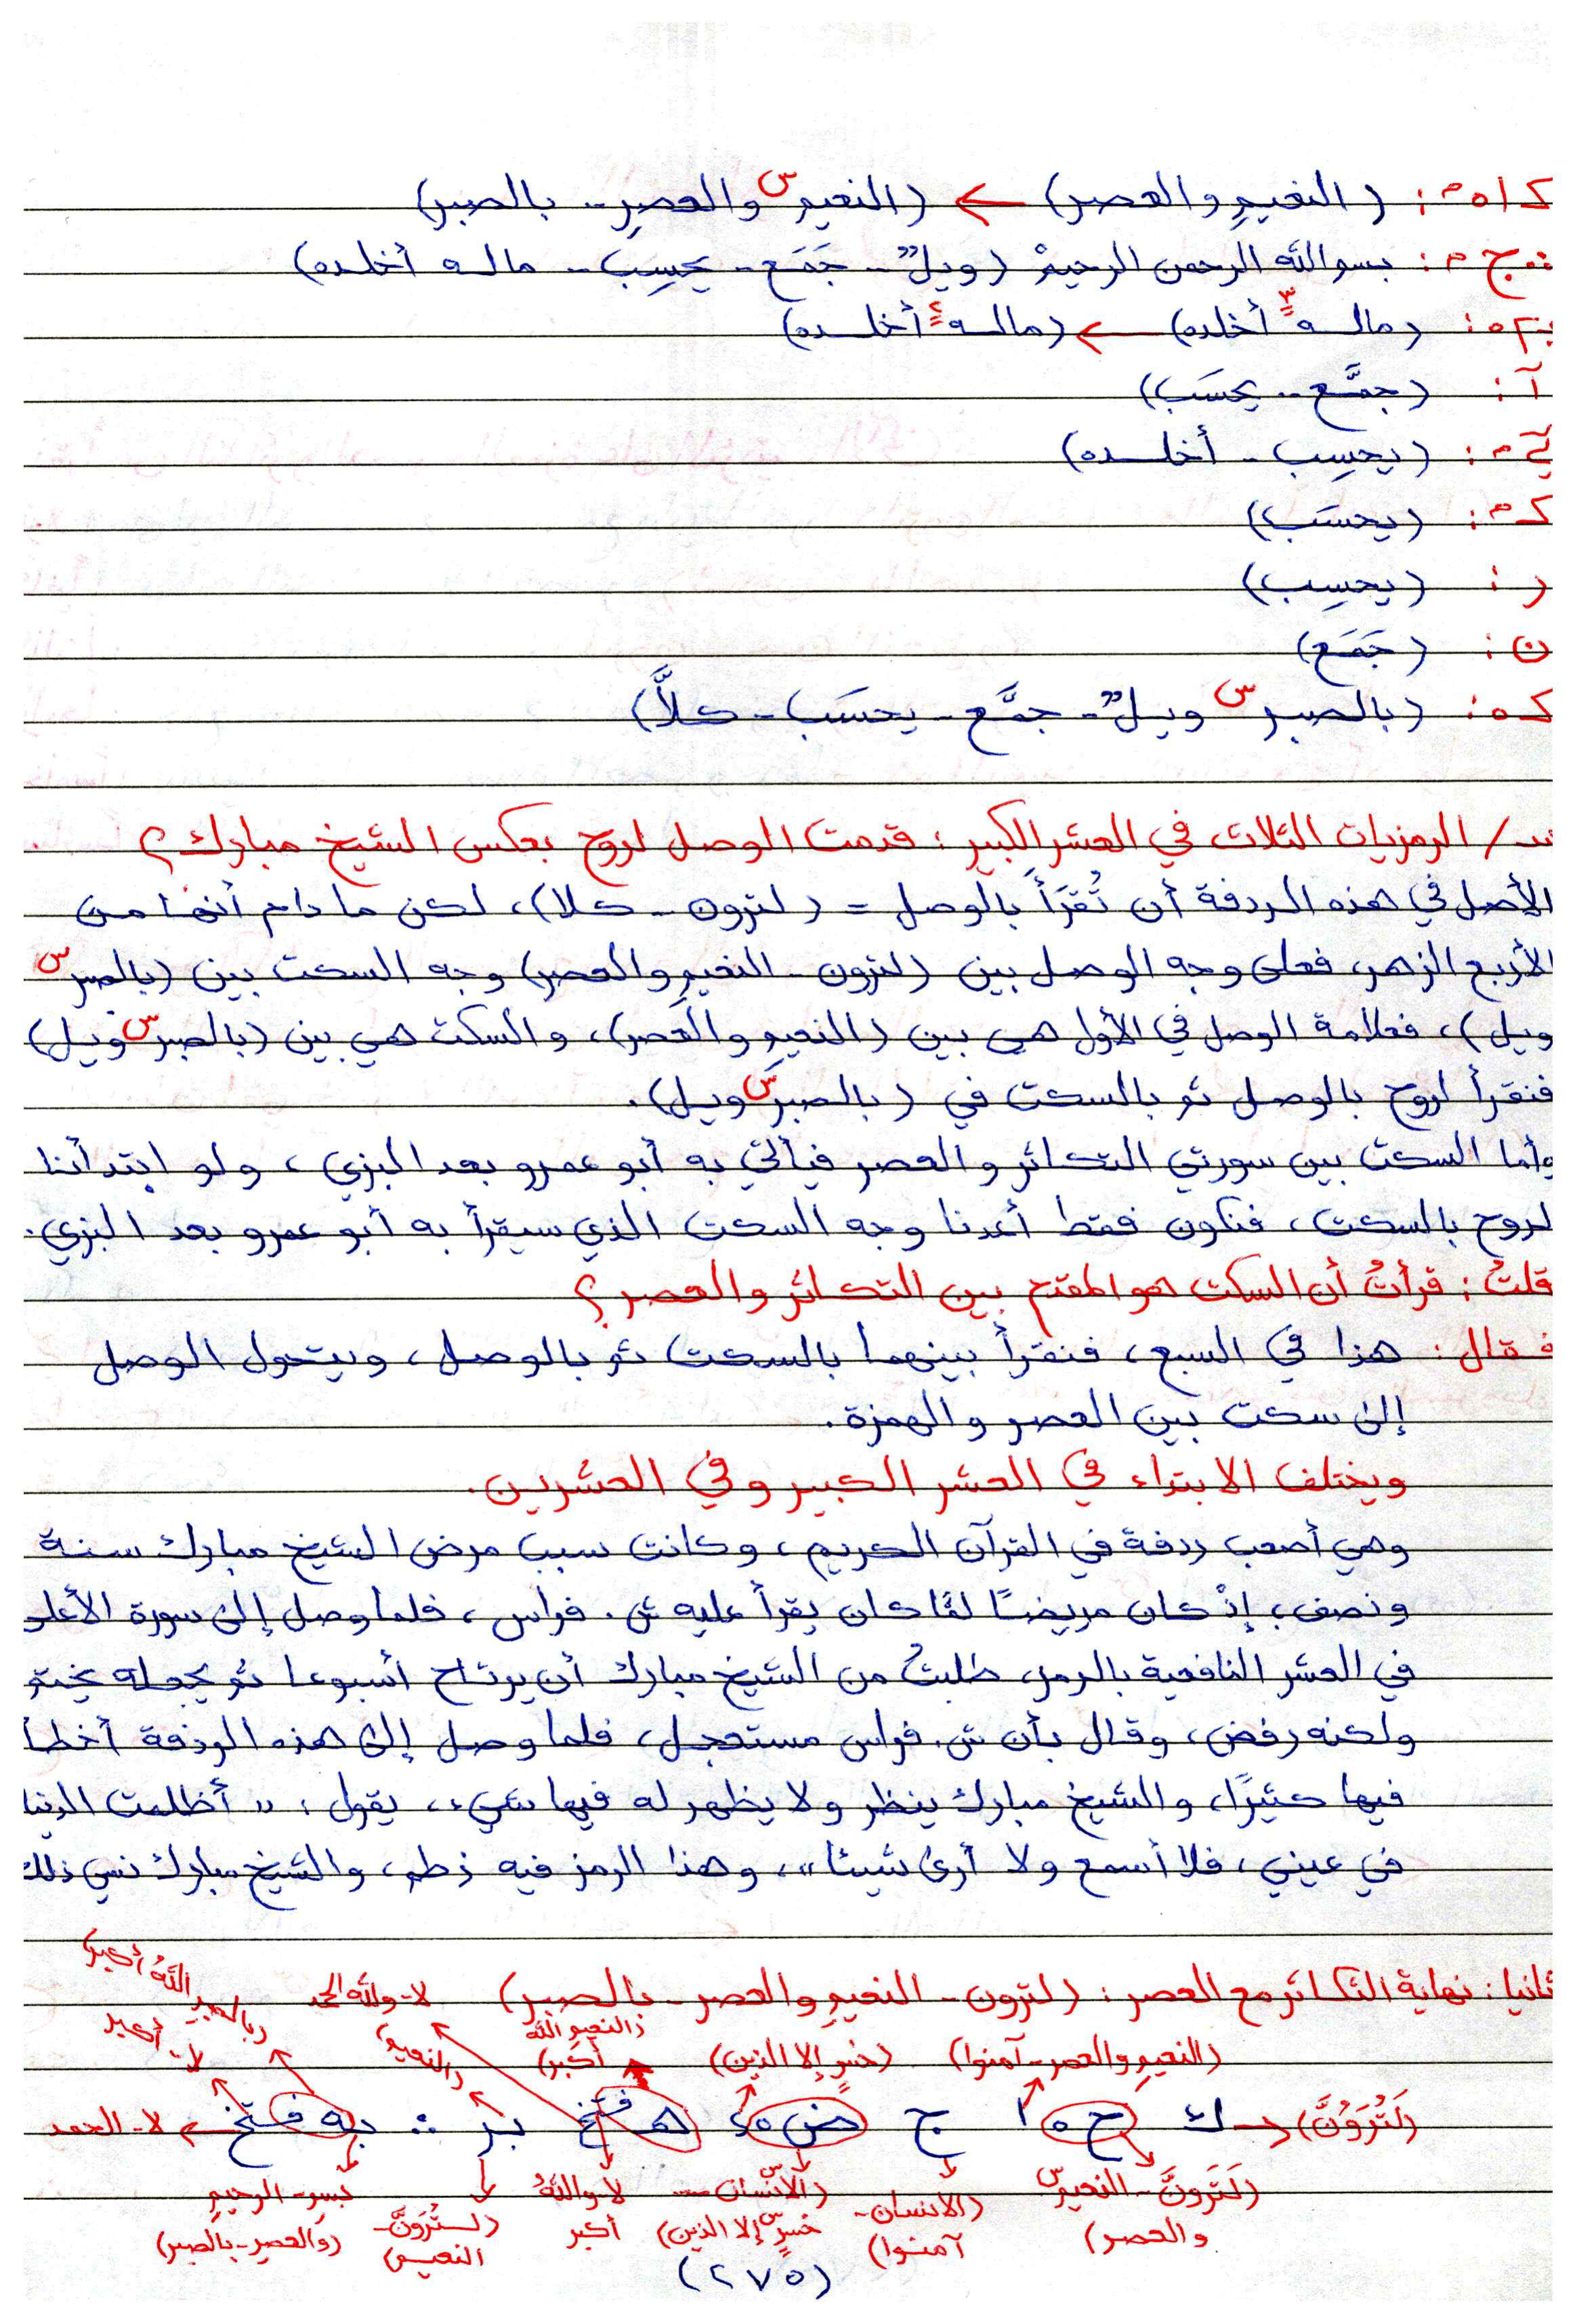 (النعيمِ والعصر) ← (النعيم س والعصر - بالصبر)
بسم الله الرحمن الرحيم (ويلٌ - جَمَع - يحسِب - ماله أخلده)
(ماله أخلده) ← (ماله أخلده)
(جمَّع - يحسَب)
(يحسِب - أخلده)
(يحسَب)
ر: (يحسِب)
ن: (جَمَع)
(بالصبر س ويلٌ - جمَّع - يحسَب - كلَّا)
الرمزيات الثلاث في العشر الكبير: قدمت الوصل لروح بعكس الشيخ مبارك؟
الأصل في هذه الردفة أن تُقرَأ بالوصل = (لترون - كلا)، لكن ما دام أنها من
الأربع الزهر، فعلى وجه الوصل بين (لترون - النعيمِ والعصر) وجه السكت بين (بالصبر س
ويل)، فعلامة الوصل في الأول هي بين (النعيم والعصر)، والسكت هي بين (بالصبر س ويل)
فنقرأ لروح بالوصل ثم بالسكت في (بالصبر س ويل).
وأما السكت بين سورتي التكاثر والعصر فيأتي به أبو عمرو بعد البزي، ولو ابتدأنا
لروح بالسكت، فنكون فقط أعدنا وجه السكت الذي سيقرأ به أبو عمرو بعد البزي.
قلتُ: قرأتُ أن السكت هو المقدم بين التكاثر والعصر؟
فقال: هذا في السبع، فنقرأ بينهما بالسكت ثم بالوصل، ويتحول الوصل
إلى سكت بين العصر والهمزة.
ويختلف الابتداء في العشر الكبير وفي العشرين.
وهي أصعب ردفة في القرآن الكريم، وكانت سبب مرض الشيخ مبارك سنة
ونصف، إذْ كان مريضًا لمَّا كان يقرأ عليه ش. فراس، فلما وصل إلى سورة الأعلى
في العشر النافعية بالرمز، طلبتُ من الشيخ مبارك أن يرتاح أسبوعا ثم يجعله يختم
ولكنه رفض، وقال بأن ش. فراس مستعجل، فلما وصل إلى هذه الردفة أخطأ
فيها كثيرًا، والشيخ مبارك ينظر ولا يظهر له فيها شيء، يقول: "أظلمت الدنيا
في عيني، فلا أسمع ولا أرى شيئا"، وهذا الرمز فيه خطأ، والشيخ مبارك نسي ذلك
ثانيا: نهاية التكاثر مع العصر: (لترون - النعيمِ والعصر - بالصبر) لا - ولله الحمد (بالصبر اللهُ أكبر)
(النعيمِ والعصر - آمنوا) (خسرٍ إلا الذين) (النعيمِ الله أكبر) (النعيم) لا - أكبر
(لَتُرَوُنَّ) ك ح ه ا ج ض هـ فتخ بر :: به فتخ ← لا - الحمد
(لَتَرَوُنَّ - النعيم س والعصر) (الانسان - آمنوا) (الانسان - خسرٍ س إلا الذين) لا - واللهُ أكبر (لتُرَوُنَّ - النعيم) بسم - الرحيم (والعصر - بالصبر)
(٢٧٥)